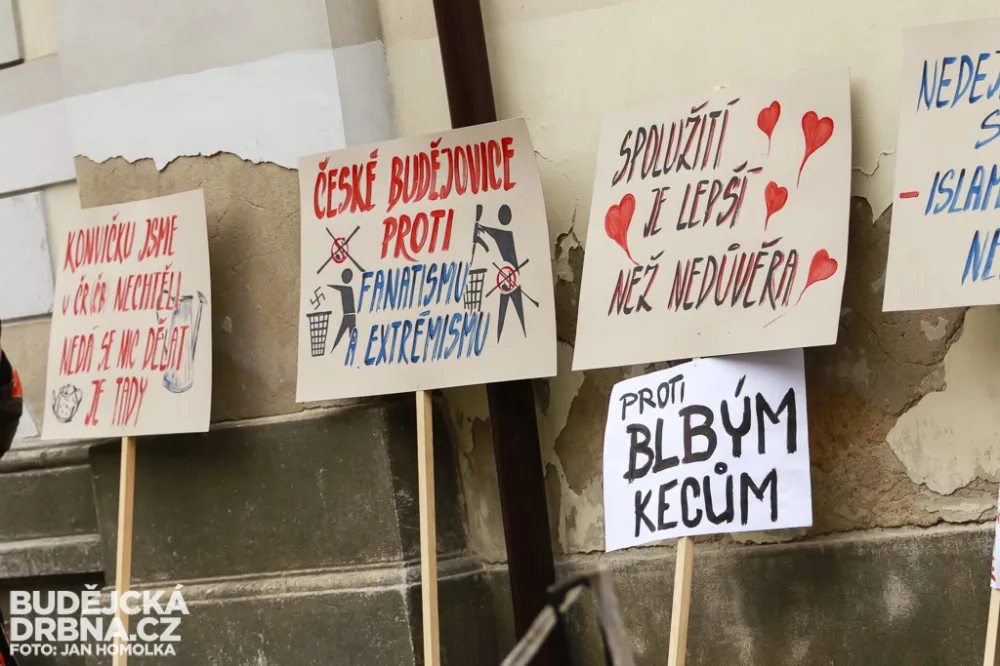 KONVIČKU JSME
V ČR/ČB NECHTĚLI
NEDÁ SE NIC DĚLAT
JE TADY
ČESKÉ BUDĚJOVICE
PROTI
FANATISMU
A EXTRÉMISMU
SPOLUŽITÍ
JE LEPŠÍ
NEŽ NEDŮVĚRA
PROTI
BLBÝM
KECŮM
NEDEJ
S
- ISLAM
NE
BUDĚJCKÁ
DRBNA.CZ
FOTO: JAN HOMOLKA